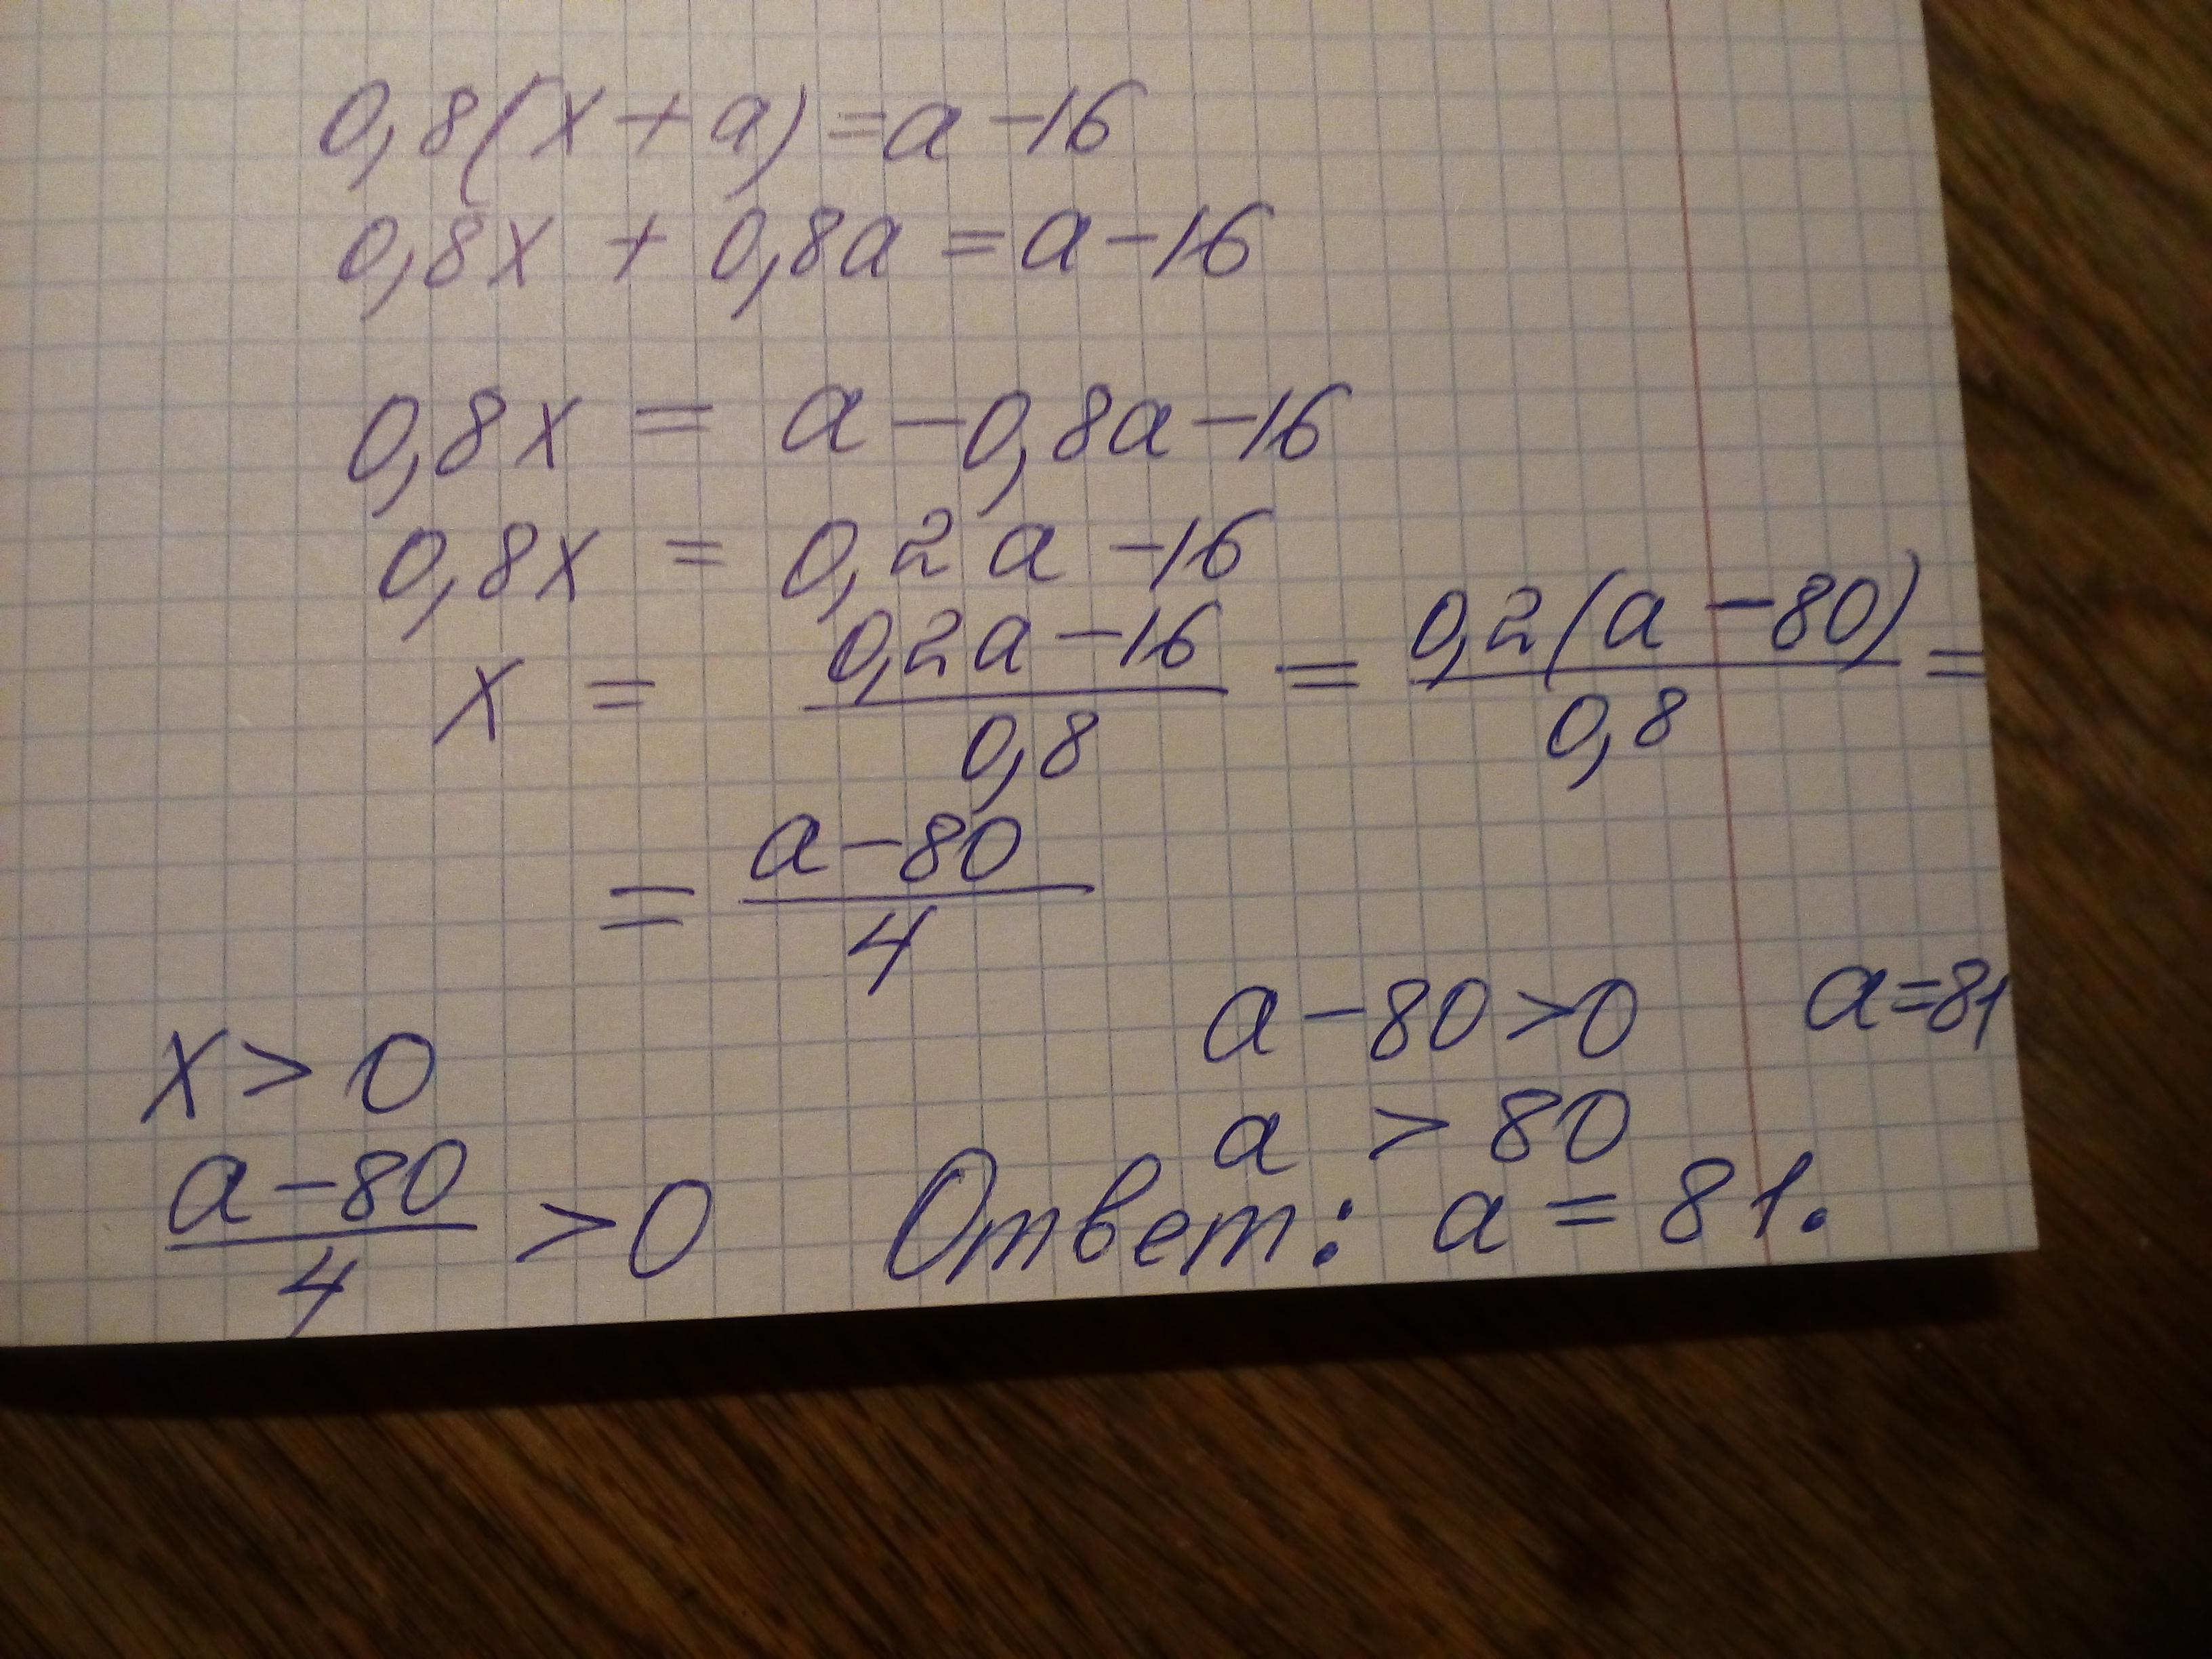 0,8(x+a)=a-16
0,8x + 0,8a = a-16
0,8x = a-0,8a-16
0,8x = 0,2a-16
x = (0,2a-16)/0,8 = (0,2(a-80))/0,8 =
= (a-80)/4
x > 0
(a-80)/4 > 0
a-80>0 a=81
a > 80
Ответ: a = 81.